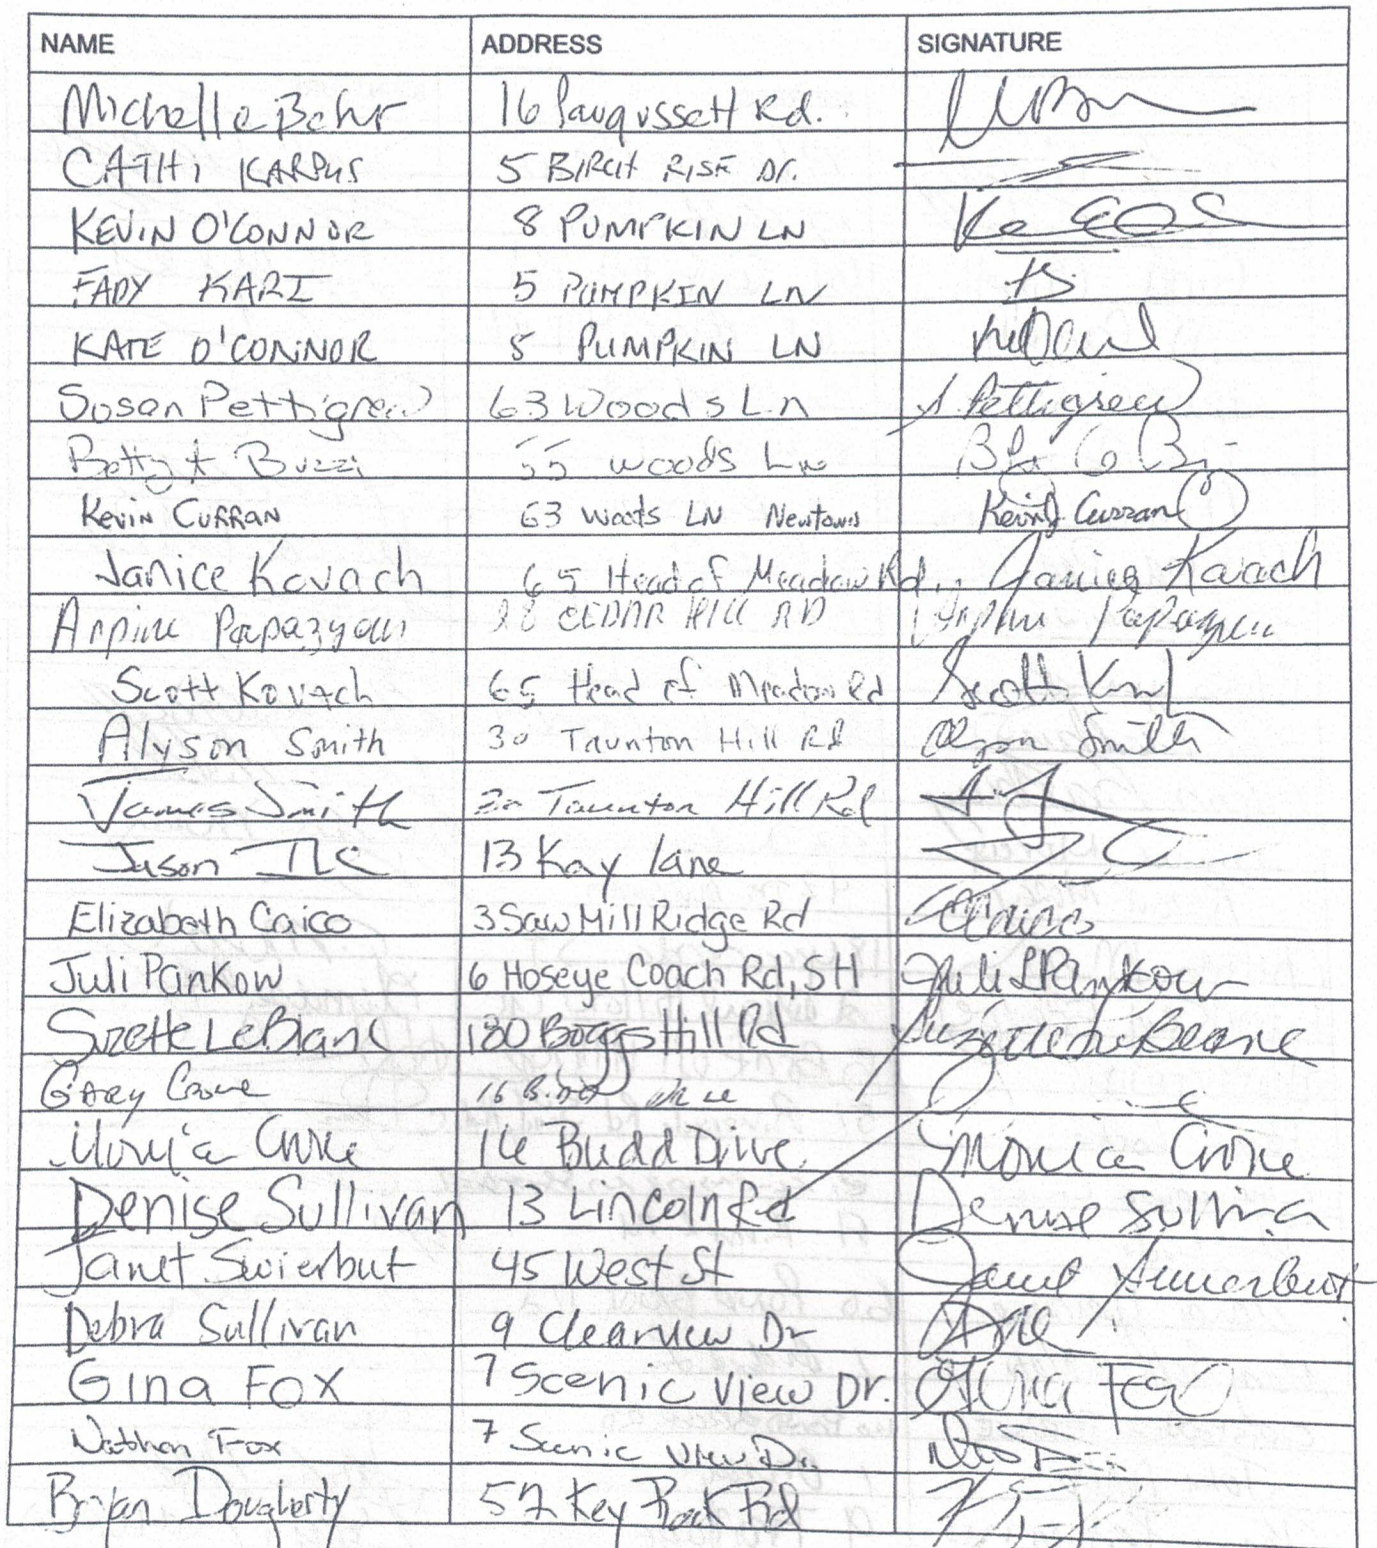 NAME ADDRESS SIGNATURE
Michelle Behr 16 Paugussett Rd.
CATHI KARPUS 5 BIRCH RISE Dr.
KEVIN O'CONNOR 8 PUMPKIN LN
FADY KARI 5 PUMPKIN LN
KATE O'CONNOR 5 PUMPKIN LN
Susan Pettigrew 63 Woods Ln S Pettigrew
Betty Buzzi 55 Woods Ln
Kevin CURRAN 63 Woods LN Newtown Kevin J Curran
Janice Kovach 65 Head of Meadow Rd. Janice Kovach
Arpine Papazyan 28 CEDAR HILL RD Arpine Papazyan
Scott Kovach 65 Head of Meadow Rd Scott
Alyson Smith 30 Taunton Hill Rd Alyson Smith
James Smith 30 Taunton Hill Rd
Jason 13 Kay lane
Elizabeth Caico 3 Saw Mill Ridge Rd ECaico
Juli Pankow 6 Hoseye Coach Rd, SH Juli Pankow
Suzette LeBlanc 130 Boggs Hill Rd Suzette LeBlanc
Gary Crone 16
Monica Crone 16 Budd Drive Monica Crone
Denise Sullivan 13 Lincoln Rd Denise Sullivan
Janet Swierbut 45 West St Janet Swierbut
Debra Sullivan 9 Clearview Dr
Gina Fox 7 Scenic View Dr. Gina Fox
Nathan Fox 7 Scenic View Dr
Bryan Dougherty 57 Key Rock Rd